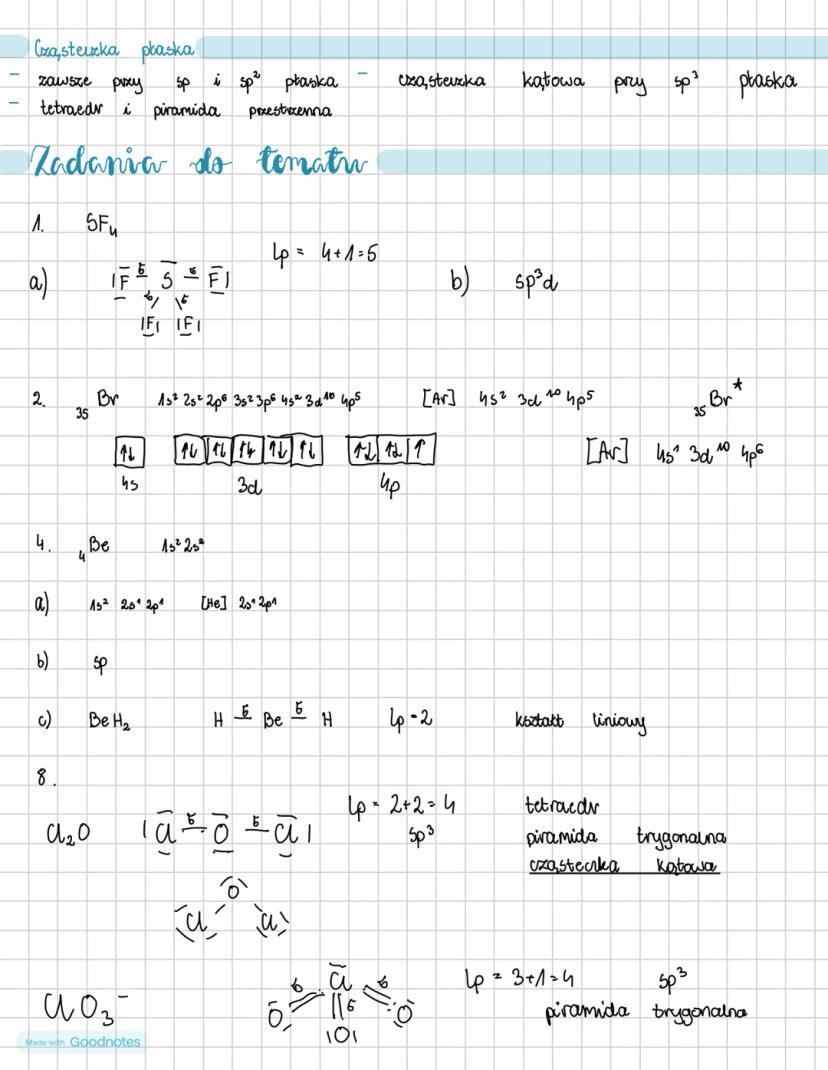 Cząsteczka płaska
- zawsze przy sp i sp² płaska - cząsteczka kątowa przy sp³ płaska
- tetraedr i piramida przestrzenna
Zadania do tematu
1. SF₄
Lp = 4+1=5
a) |F̅ б S̅ б F̅| b) sp³d
б б
|F| |F|
2. ₃₅Br 1s² 2s² 2p⁶ 3s² 3p⁶ 4s² 3d¹⁰ 4p⁵ [Ar] 4s² 3d¹⁰ 4p⁵ ₃₅Br*
↑↓ ↑↓ ↑↓ ↑↓ ↑↓ ↑↓ ↑↓ ↑↓ ↑ [Ar] 4s¹ 3d¹⁰ 4p⁶
4s 3d 4p
4. ₄Be 1s² 2s²
a) 1s² 2s¹ 2p¹ [He] 2s¹ 2p¹
b) sp
c) BeH₂ H б Be б H Lp = 2 kształt liniowy
8.
Lp = 2+2=4 tetraedr
Cl₂O |Cl б O б Cl| sp³ piramida trygonalna
cząsteczka kątowa
O
Cl Cl
ClO₃⁻ б Cl б Lp = 3+1=4 sp³
O б O piramida trygonalna
|O|
Made with Goodnotes